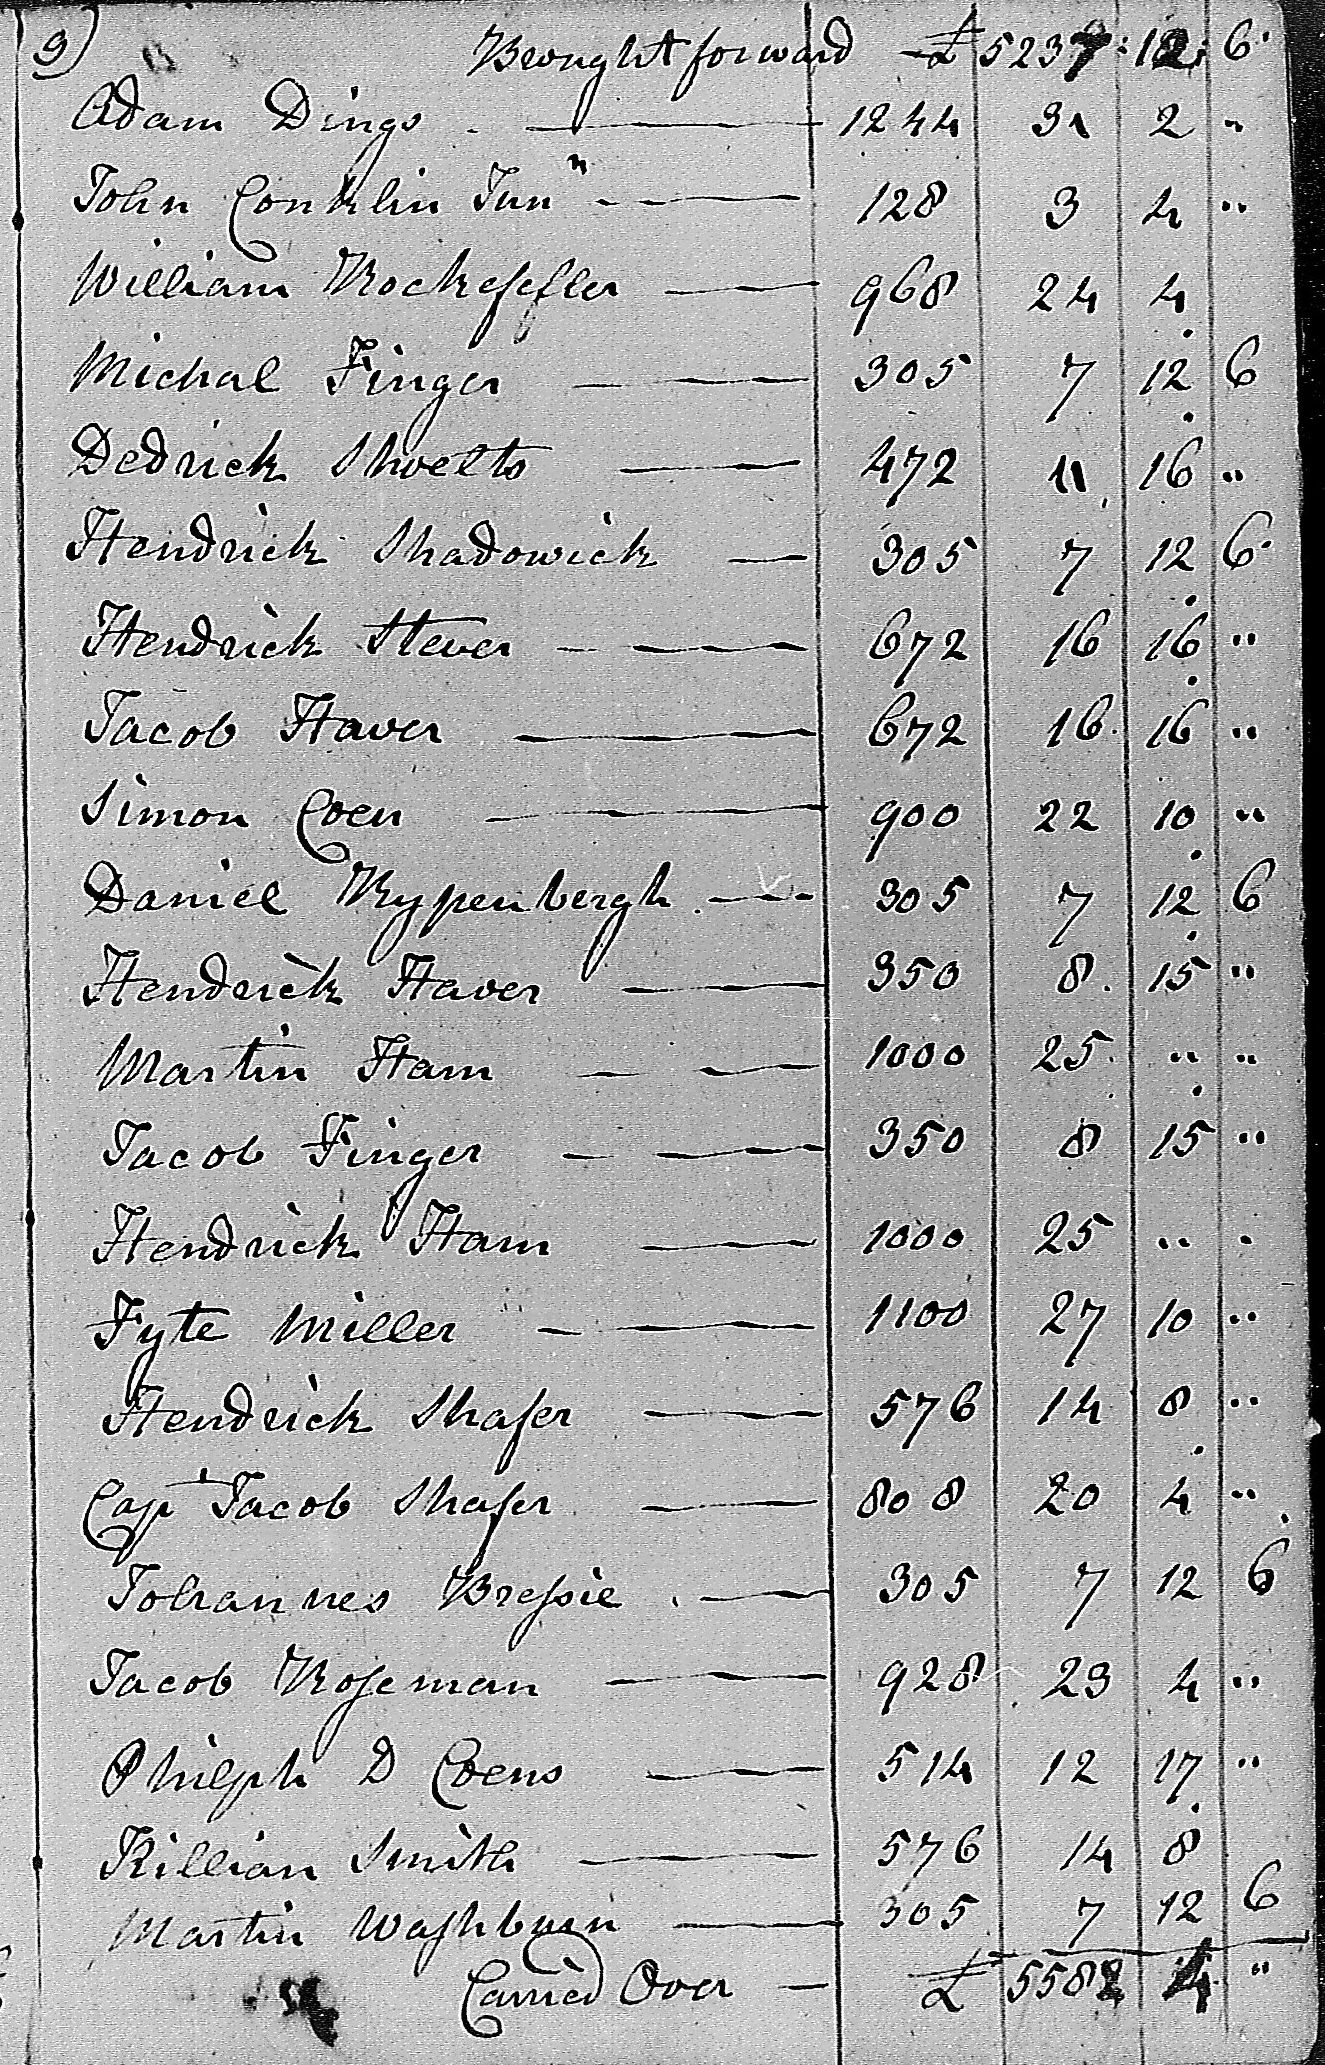 9)
Brought forward £ 5237 : 12 : 6
Adam Dings 1244 31 2 "
John Conklin Junr 128 3 4 "
William Rockefeller 968 24 4
Michal Finger 305 7 12 6
Dedrick Shoelts 472 11 16 "
Hendrick Shadowick 305 7 12 6
Hendrick Stever 672 16 16 "
Jacob Haver 672 16 16 "
Simon Coen 900 22 10 "
Daniel Rypenbergh 305 7 12 6
Hendrick Haver 350 8 15 "
Martin Ham 1000 25 " "
Jacob Finger 350 8 15 "
Hendrick Ham 1000 25 " "
Fyte Miller 1100 27 10 "
Hendrick Shafer 576 14 8 "
Capt Jacob Shafer 808 20 4 "
Johannes Bressie 305 7 12 6
Jacob Roseman 928 23 4 "
Philiph D Coens 514 12 17 "
Killian Smith 576 14 8
Martin Washburn 305 7 12 6
Carried Over £ 5582 4 "